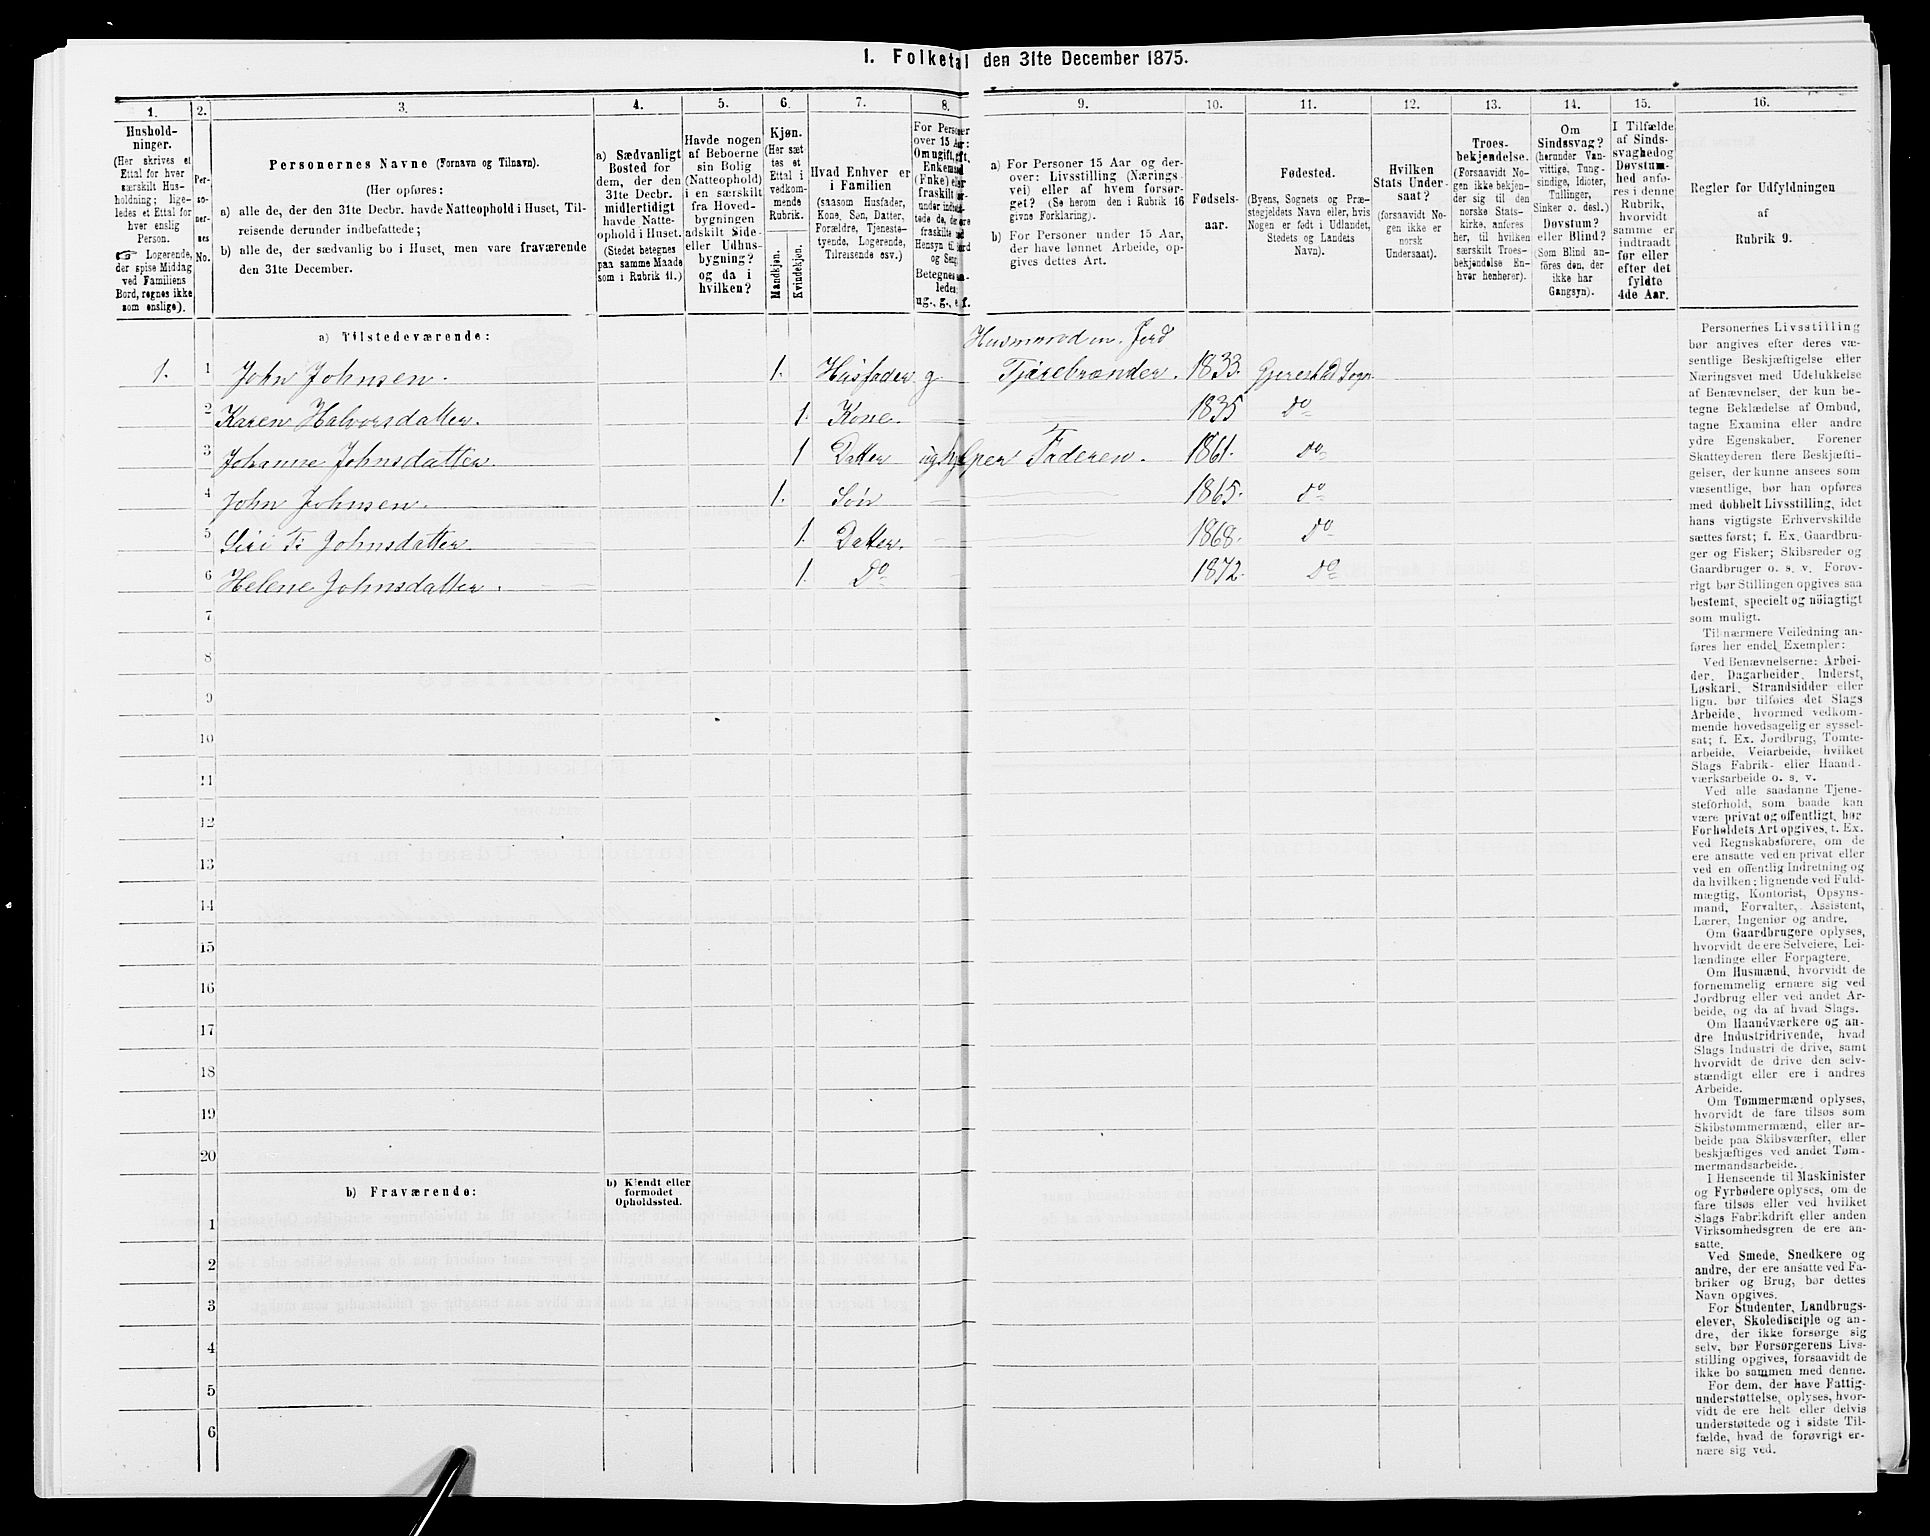 1. Folketal den 31te December 1875.
1. 2. 3. 4. 5. 6. 7. 8. 9. 10. 11. 12. 13. 14. 15. 16.
Hushold-
ninger.
(Her skrives et
Ettal for hver
særskilt Hus-
holdning; lige-
ledes et Ettal for
hver enslig
Person.
☞ Logerende,
der spise Middag
ved Familiens
Bord, regnes ikke
som enslige).
Per-
so-
ner-
nes
No.
Personernes Navne (Fornavn og Tilnavn).
(Her opføres:
a) alle de, der den 31te Decbr. havde Natteophold i Huset, Til-
reisende derunder indbefattede;
b) alle de, der sædvanlig bo i Huset, men vare fraværende
den 31te December.
a) Sædvanligt
Bosted for
dem, der den
31te Decbr.
midlertidigt
havde Natte-
ophold i Huset.
(Stedet betegnes
paa samme Maade
som i Rubrik 11.)
Havde nogen
af Beboerne
sin Bolig
(Natteophold)
i en særskilt
fra Hoved-
bygningen
adskilt Side-
eller Udhus-
bygning?
og da i
hvilken?
Kjøn.
(Her sæt
tes et
Ettal i
vedkom-
mende
Rubrik.
Mandkjøn.
Kvindekjøn.
Hvad Enhver er
i Familien
(saasom Husfader,
Kone, Søn, Datter,
Forældre, Tjeneste-
tyende, Logerende,
Tilreisende osv.)
For Personer
over 15 Aar:
Om ugift, gift,
Enkemand
(Enke) eller
fraskilt
Betegnes
ledes:
ug., g., e., f.
a) For Personer 15 Aar og der-
over: Livsstilling (Nærings-
vei) eller af hvem forsør-
get? (Se herom den i Rubrik 16
givne Forklaring).
b) For Personer under 15 Aar,
der have lønnet Arbeide, op-
gives dettes Art.
Fødsels-
aar.
Fødested.
(Byens, Sognets og Præ-
stegjeldets Navn eller, hvis
Nogen er født i Udlandet,
Stedets og Landets
Navn).
Hvilken
Stats Under-
saat?
(forsaavidt No-
gen ikke er
norsk
Undersaat).
Troes-
bekjendelse.
(Forsaavidt No-
gen ikke bekjen-
der sig til den
norske Stats-
kirke, anføres
her, til hvilken
særskilt Troes-
bekjendelse En-
hver henhører).
Om
Sindssvag?
(herunder Van-
vittige, Tung-
sindige, Idioter,
Tullinger,
Sinker o. desl.)
Døvstum?
eller Blind?
(Som Blind an-
føres den, der
ikke har
Gangsyn).
I Tilfælde
af Sinds-
svaghed og
Døvstum-
hed anfø-
res i denne
Rubrik,
hvorvidt
samme er
indtraadt
før eller
efter det
fyldte
4de Aar.
Regler for Udfyldningen
af
Rubrik 9.
a) Tilstedeværende:
Husmand m. Jord
1. 1 John Johnsen. 1. Husfader g Tjærebrænder. 1833. Gjerestad Sogn
2 Karen Halvorsdatter. 1. Kone. 1835 Do
3 Johanne Johnsdatter. 1 Datter ug hjelper Faderen. 1861. Do
4 John Johnsen. 1. Søn 1865. Do
5 Siri T. Johnsdatter. 1. Datter. 1868. Do
6 Helene Johnsdatter. 1. Do 1872. Do
7
8
9
10
11
12
13
14
15
16
17
18
19
20
b) Fraværende:
b) Kjendt eller
formodet
Opholdssted.
1
2
3
4
5
6
Personernes Livsstilling
bør angives efter deres væ-
sentlige Beskjæftigelse eller
Næringsvei med Udelukkelse
af Benævnelser, der kun be-
tegne Beklædelse af Ombud,
tagne Examina eller andre
ydre Egenskaber. Forener
Skatteyderen flere Beskjæfti-
gelser, der kunne ansees som
væsentlige, bør han opføres
med dobbelt Livsstilling, idet
hans vigtigste Erhvervskilde
sættes først; f. Ex. Gaardbru-
ger og Fisker; Skibsreder og
Gaardbruger o. s. v. Forøv-
rigt bør Stillingen opgives saa
bestemt, specielt og nöiagtigt
som muligt.
Til nærmere Veiledning an-
føres her endel Exempler:
Ved Benævnelserne: Arbei-
der, Dagarbeider, Inderst,
Løskarl, Strandsidder eller
lign. bør tilføies det Slags
Arbeide, hvormed vedkom-
mende hovedsagelig er syssel-
sat; f. Ex. Jordbrug, Tomte-
arbeide, Veiarbeide, hvilket
Slags Fabrik- eller Haand-
værksarbeide o. s. v.
Ved alle saadanne Tjene-
steforhold, som baade kan
være privat og offentligt, bør
Forholdets Art opgives, t. Ex.
ved Regnskabsførere, om de
ere ansatte ved en privat eller
ved en offentlig Indretning og
da hvilken; lignende ved Fuld-
mægtig, Kontorist, Opsyns-
mand, Forvalter, Assistent,
Lærer, Ingeniør og andre.
Om Gaardbrugere oplyses,
hvorvidt de ere Selveiere, Lei-
lændinge eller Forpagtere.
Om Husmænd, hvorvidt de
fornemmelig ernære sig ved
Jordbrug eller ved andet Ar-
beide, og da af hvad Slags.
Om Haandværkere og an-
dre Industridrivende, hvad
Slags Industri de drive, samt
hvorvidt de drive den selv-
stændigt eller ere i andres
Arbeide.
Om Tømmermænd oplyses,
hvorvidt de fare tilsøs som
Skibstømmermænd, eller ar-
beide paa Skibsværfter, eller
beskjæftiges ved andet Tøm-
mermandsarbeide.
I Henseende til Maskinister
og Fyrbødere oplyses, om de
fare tilsøs eller ved hvilket
Slags Fabrikdrift eller anden
Virksomhedsgren de ere an-
satte.
Ved Smede, Snedkere og
andre, der ere ansatte ved Fa-
briker og Brug, bør dettes
Navn opgives.
For Studenter, Landbrugs-
elever, Skoledisciple og an-
dre, der ikke forsørge sig
selv, bør Forsørgerens Livs-
stilling opgives, forsaavidt de
ikke bo sammen med denne.
For dem, der have Fattig-
understøttelse, oplyses, hvor-
vidt de ere helt eller delvis
understøttede og i sidste Til-
fælde, hvad de forøvrigt er-
nære sig ved.